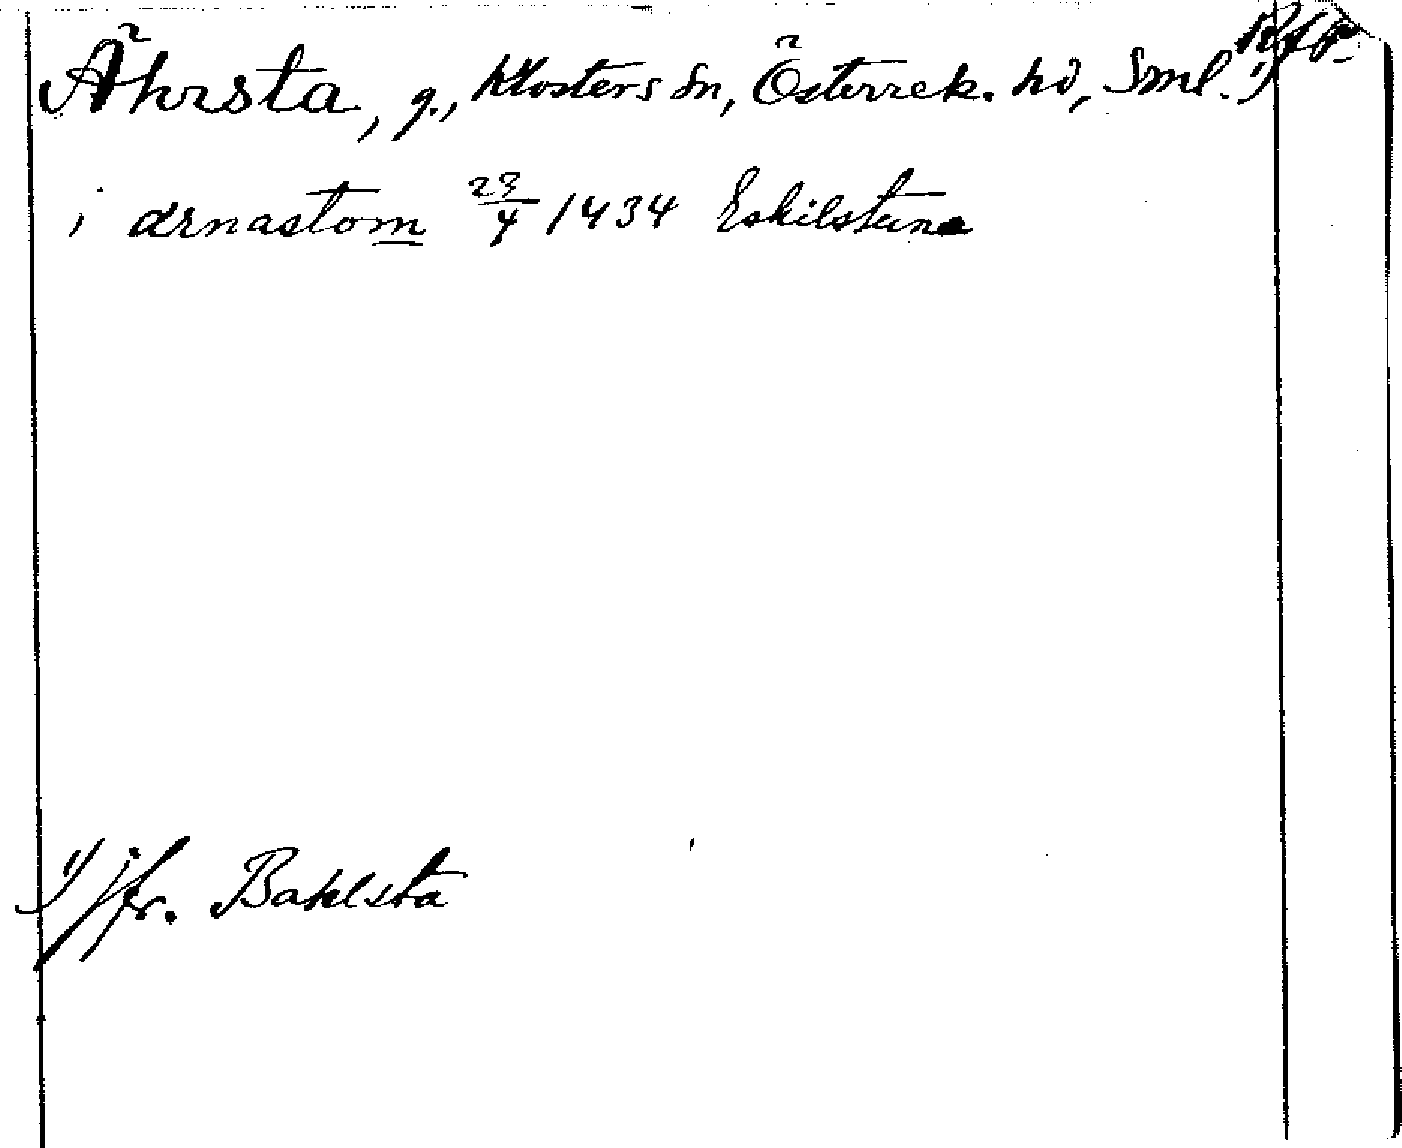 Ährsta, g., Klosters sn, Österrek. hd, Sml. 1)
i ærnastom 23/4 1434 Eskilstuna
1) jfr. Bahlsta